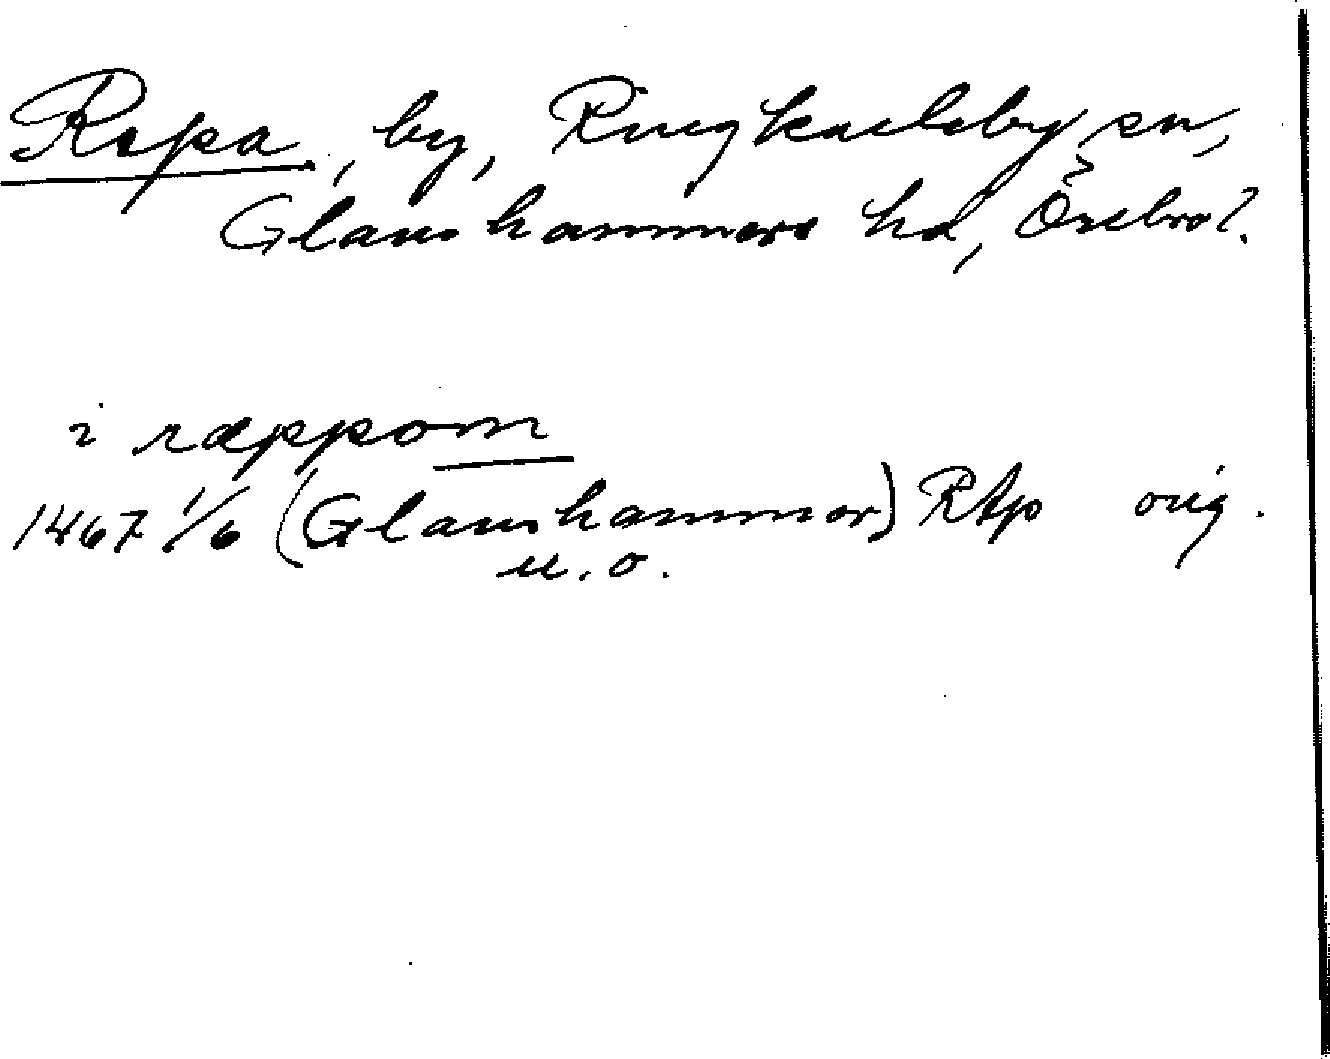 Repa, by, Ringkarleby sn,
Glanshammars hd, Örebro l.
i ræppom
1467 1/6 (Glanshammar) RAp orig.
u.o.